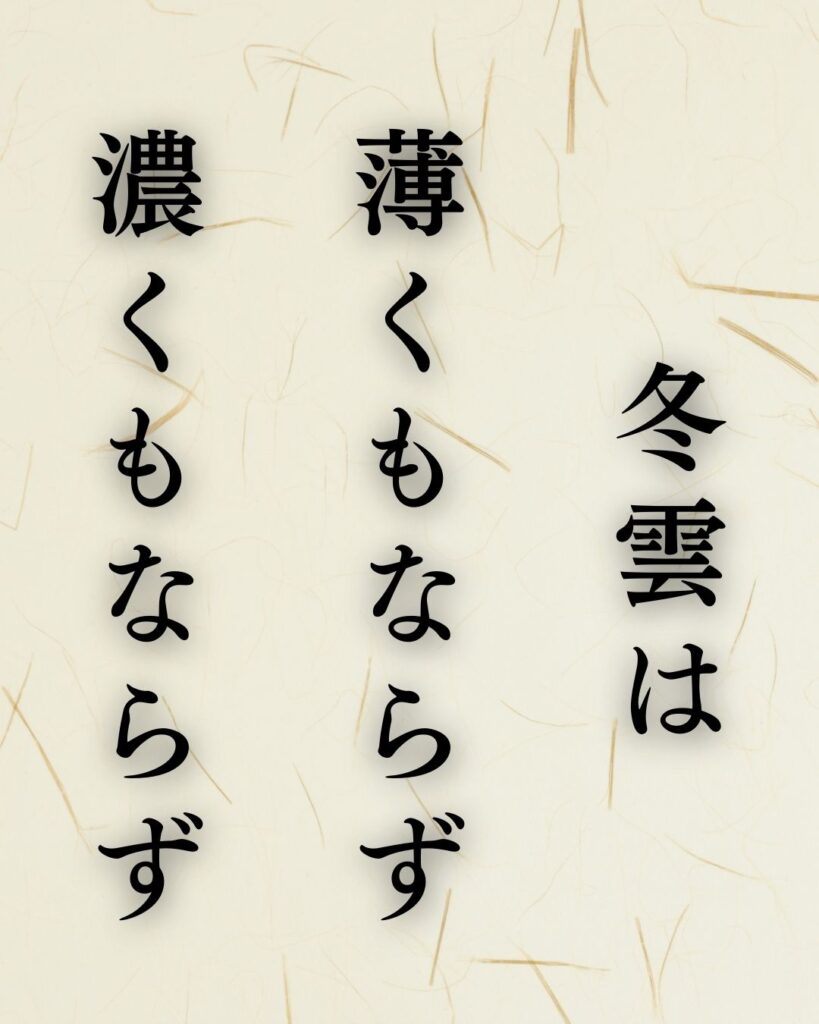 冬雲は
薄くもならず
濃くもならず